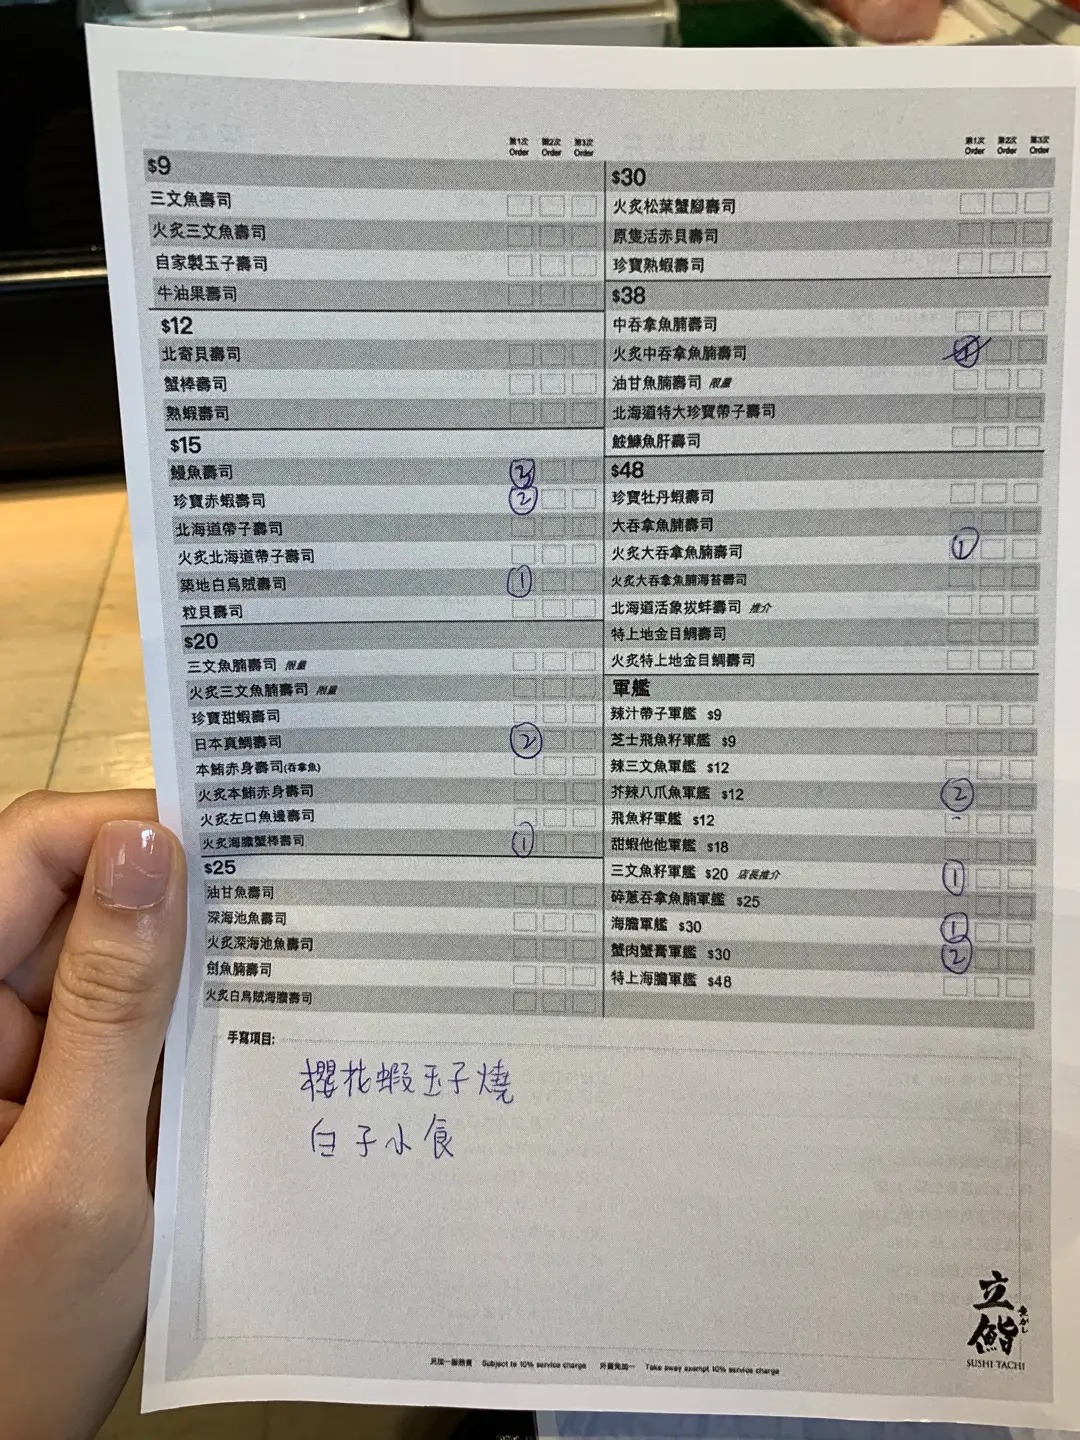 第1次 第2次 第3次
Order Order Order
$9
三文魚壽司
火炙三文魚壽司
自家製玉子壽司
牛油果壽司
$12
北寄貝壽司
蟹棒壽司
熟蝦壽司
$15
鰻魚壽司 3
珍寶赤蝦壽司 2
北海道帶子壽司
火炙北海道帶子壽司
築地白烏賊壽司 1
粒貝壽司
$20
三文魚腩壽司 限量
火炙三文魚腩壽司 限量
珍寶甜蝦壽司
日本真鯛壽司 2
本鮪赤身壽司(吞拿魚)
火炙本鮪赤身壽司
火炙左口魚邊壽司
火炙海膽蟹棒壽司 1
$25
油甘魚壽司
深海池魚壽司
火炙深海池魚壽司
劍魚腩壽司
火炙白烏賊海膽壽司
第1次 第2次 第3次
Order Order Order
$30
火炙松葉蟹腳壽司
原隻活赤貝壽司
珍寶熟蝦壽司
$38
中吞拿魚腩壽司
火炙中吞拿魚腩壽司
油甘魚腩壽司 限量
北海道特大珍寶帶子壽司
鮟鱇魚肝壽司
$48
珍寶牡丹蝦壽司
大吞拿魚腩壽司
火炙大吞拿魚腩壽司 1
火炙大吞拿魚腩海苔壽司
北海道活象拔蚌壽司 推介
特上地金目鯛壽司
火炙特上地金目鯛壽司
軍艦
辣汁帶子軍艦 $9
芝士飛魚籽軍艦 $9
辣三文魚軍艦 $12
芥辣八爪魚軍艦 $12 2
飛魚籽軍艦 $12
甜蝦他他軍艦 $18
三文魚籽軍艦 $20 店長推介 1
碎蔥吞拿魚腩軍艦 $25
海膽軍艦 $30 1
蟹肉蟹膏軍艦 $30 2
特上海膽軍艦 $48
手寫項目:
櫻花蝦玉子燒
白子小食
立鮨
SUSHI TACHI
另加一服務費 Subject to 10% service charge 外賣免加一 Take away exempt 10% service charge